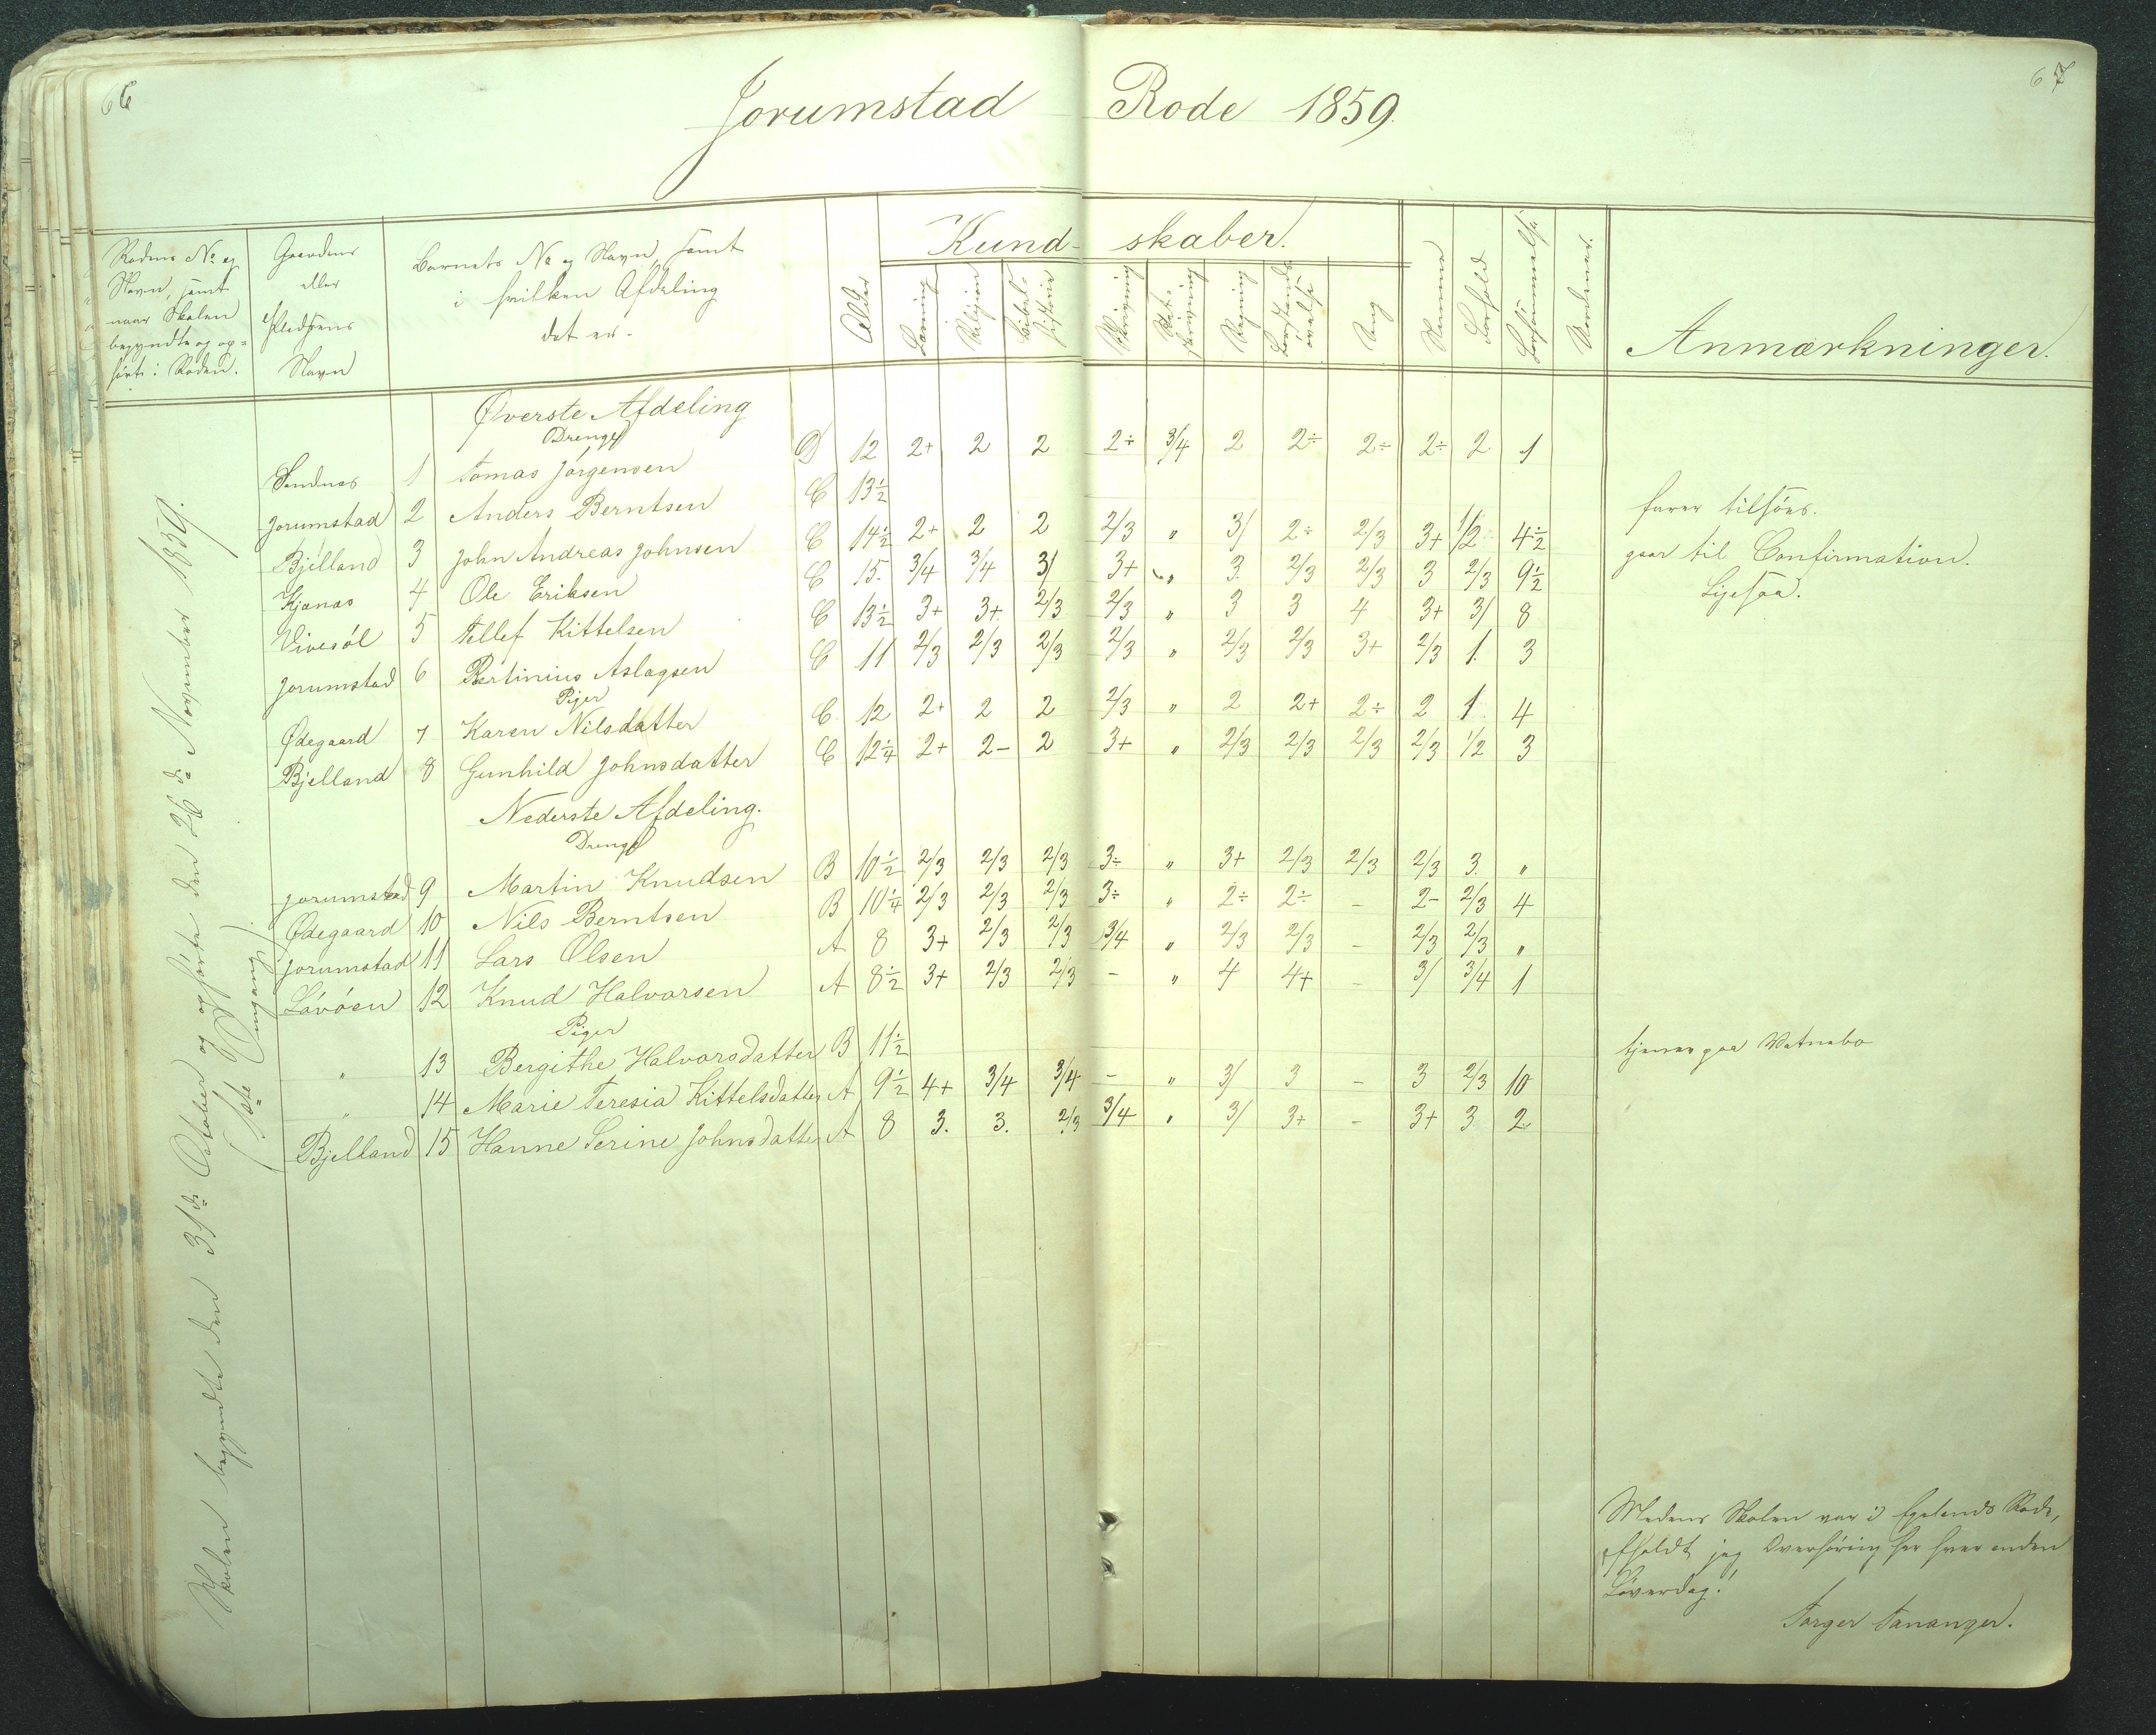 66
67
Jorumstad Rode 1859.
Rodens No og
Navn, samt
naar Skolen
begyndte og op-
hørte i Roden.
Gaardens
eller
Pladsens
Navn
Barnets No og Navn, samt
i hvilken Afdeling
det er.
Alder
Kund-skaber.
Læsning
Religion
Bibel-
historie
Skrivning
Ret-
skrivning
Regning
Forstands-
øvelse
Sang
Evne
Forhold
Forsømmelse
Anmærkninger.
Skolen begyndte den 31de October og ophørte den 26de November 1859.
(1ste Omgang)
Øverste Afdeling
Drenge
Sandnes 1 Tomas Jørgensen D 12 2+ 2 2 2÷ 3/4 2 2÷ 2÷ 2÷ 2 1
Jorumstad 2 Anders Berntsen C 13½ farer tilsøes.
Bjelland 3 John Andreas Johnsen C 14½ 2+ 2 2 2/3 " 3/ 2÷ 2/3 3+ 1/2 4½ gaar til Confirmation.
Kjenas 4 Ole Eriksen C 15. 3/4 3/4 3/ 3+ " 3. 2/3 2/3 3 2/3 9½ Ligesaa.
Vivesøl 5 Tellef Kittelsen C 13½ 3+ 3+ 2/3 2/3 " 3 3 4 3+ 3/ 8
Jorumstad 6 Bertinius Aslagsen C 11 2/3 2/3 2/3 2/3 " 2/3 2/3 3+ 2/3 1. 3
Piger
Ødegaard 7 Karen Nilsdatter C 12 2+ 2 2 2/3 " 2 2+ 2÷ 2 1 4
Bjelland 8 Gunhild Johnsdatter C 12¼ 2+ 2- 2 3+ " 2/3 2/3 2/3 2/3 1/2 3
Nederste Afdeling.
Drenge
Jorumstad 9 Martin Knudsen B 10½ 2/3 2/3 2/3 3÷ " 3+ 2/3 2/3 2/3 3. "
Ødegaard 10 Nils Berntsen B 10¼ 2/3 2/3 2/3 3÷ " 2÷ 2÷ - 2- 2/3 4
Jorumstad 11 Lars Olsen A 8 3+ 2/3 2/3 3/4 " 2/3 2/3 - 2/3 2/3 "
Løvøen 12 Knud Halvorsen A 8½ 3+ 2/3 2/3 - " 4 4+ - 3/ 3/4 1
Piger
" 13 Bergithe Halvorsdatter B 11½ tjener paa Vatnebo
" 14 Marie Teresia Kittelsdatter A 9½ 4+ 3/4 3/4 - " 3/ 3 - 3 2/3 10
Bjelland 15 Hanne Serine Johnsdatter A 8 3. 3. 2/3 3/4 " 3/ 3+ - 3+ 3 2
Medens Skolen var i Egelands Rode,
afholdt jeg Overhøring her hver anden
Løverdag.
Torger Tananger.